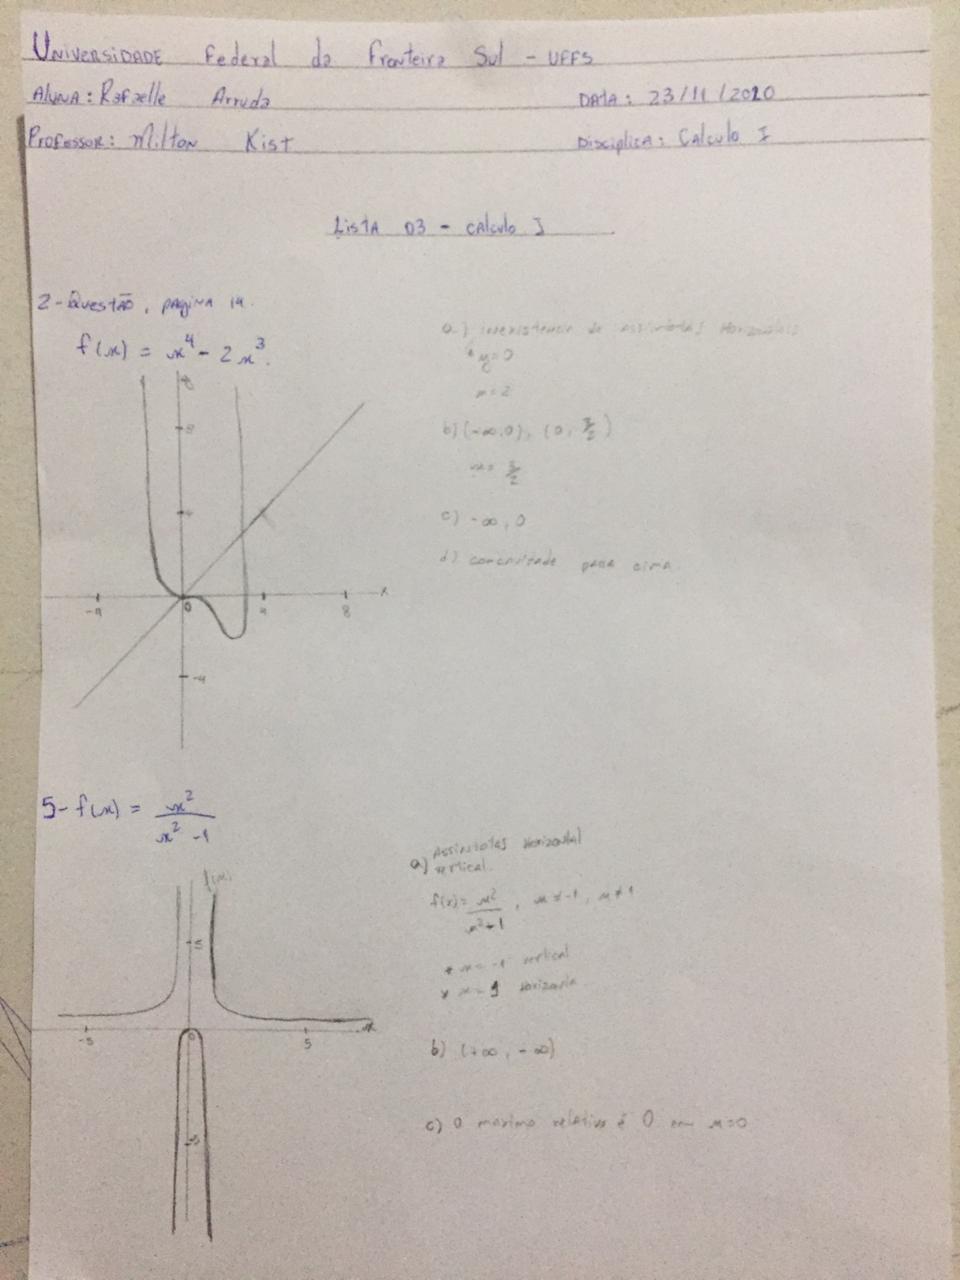 UNIVERSIDADE Federal da Fronteira Sul - UFFS
ALUNA: Rafaelle Arruda DATA: 23/11/2020
PROFESSOR: Milton Kist Disciplica: Calculo I
LISTA 03 - CALCULO I
2- QUESTÃO, PAGINA 14.
f(x) = x⁴ - 2x³.
a) inexistencia de Assintotas Horizontais
* y=0
x=2
b) (-∞,0), (0, 3/2)
x= 3/2
c) -∞, 0
d) concavidade para cima
8
4
-4 0 4 8 x
-4
5- f(x) = x²/x² -1
a) Assintotas Horizontal
vertical.
f(x)= x²/x²-1, x≠-1, x≠1
* x= -1 vertical
* x= 1 Horizontal
b) (+∞, -∞)
c) O maximo relativo é 0 em x=0
f(x)
5
-5 0 5 x
-5